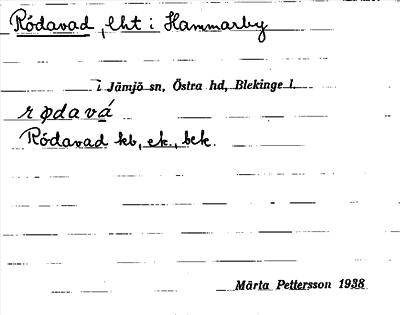 Ródavad, lht i Hammarby
i Jämjö sn, Östra hd, Blekinge l.
rødavá
Ródavad kb, ek., bek.
Märta Pettersson 1938